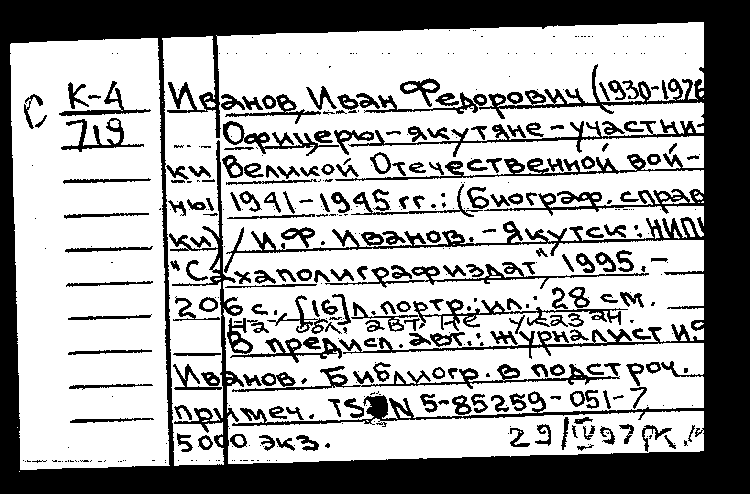 С К-4 Иванов, Иван Федорович (1930-1976
719 Офицеры-якутяне-участни-
ки Великой Отечественной вой-
ны 1941-1945 гг.: (Биограф. справ
ки) / И.Ф. Иванов. - Якутск: НИПК
"Сахаполиграфиздат", 1995. -
206 с., [16] л. портр.; ил.; 28 см.
На обл. авт. не указан.
В предисл. авт.: журналист И.Ф
Иванов. Библиогр. в подстроч.
примеч. ISBN 5-85259-051-7,
5000 экз.
29/IV 97